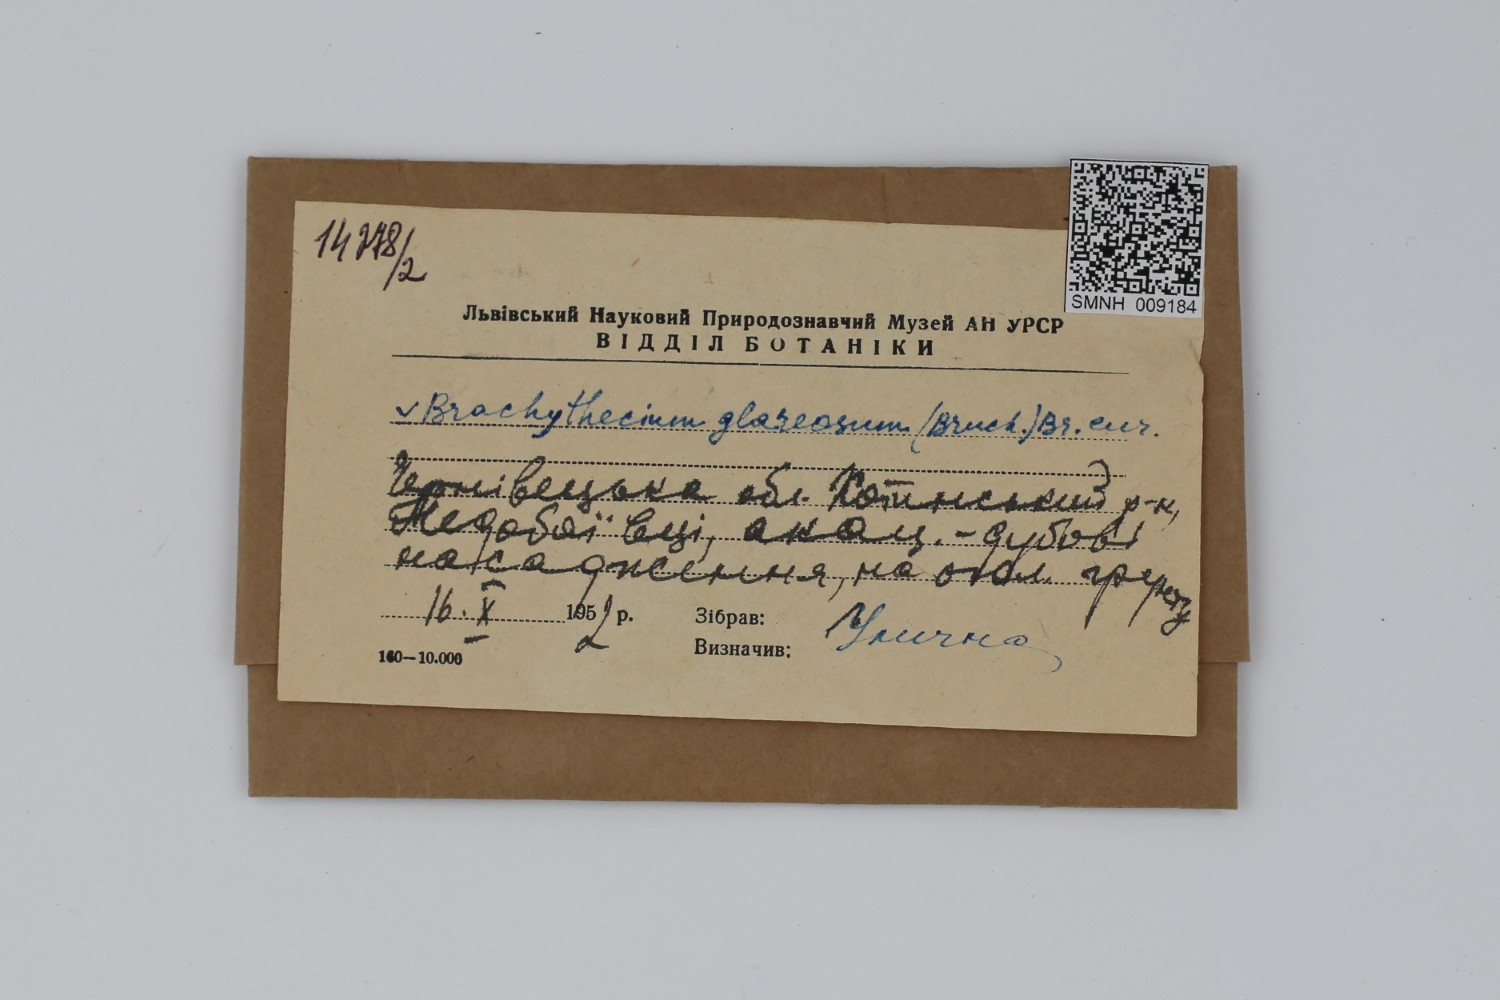 14278/2
SMNH 009184
Львівський Науковий Природознавчий Музей АН УРСР
ВІДДІЛ БОТАНІКИ
✓Brachythecium glareosum (Bruch.) Br. eur.
Чернівецька обл. Хотинський р-н,
Недобоївці, акац.-дубові
насадження, на огол. грунту
16. X 1952 р. Зібрав:
Визначив: Улична
100—10.000